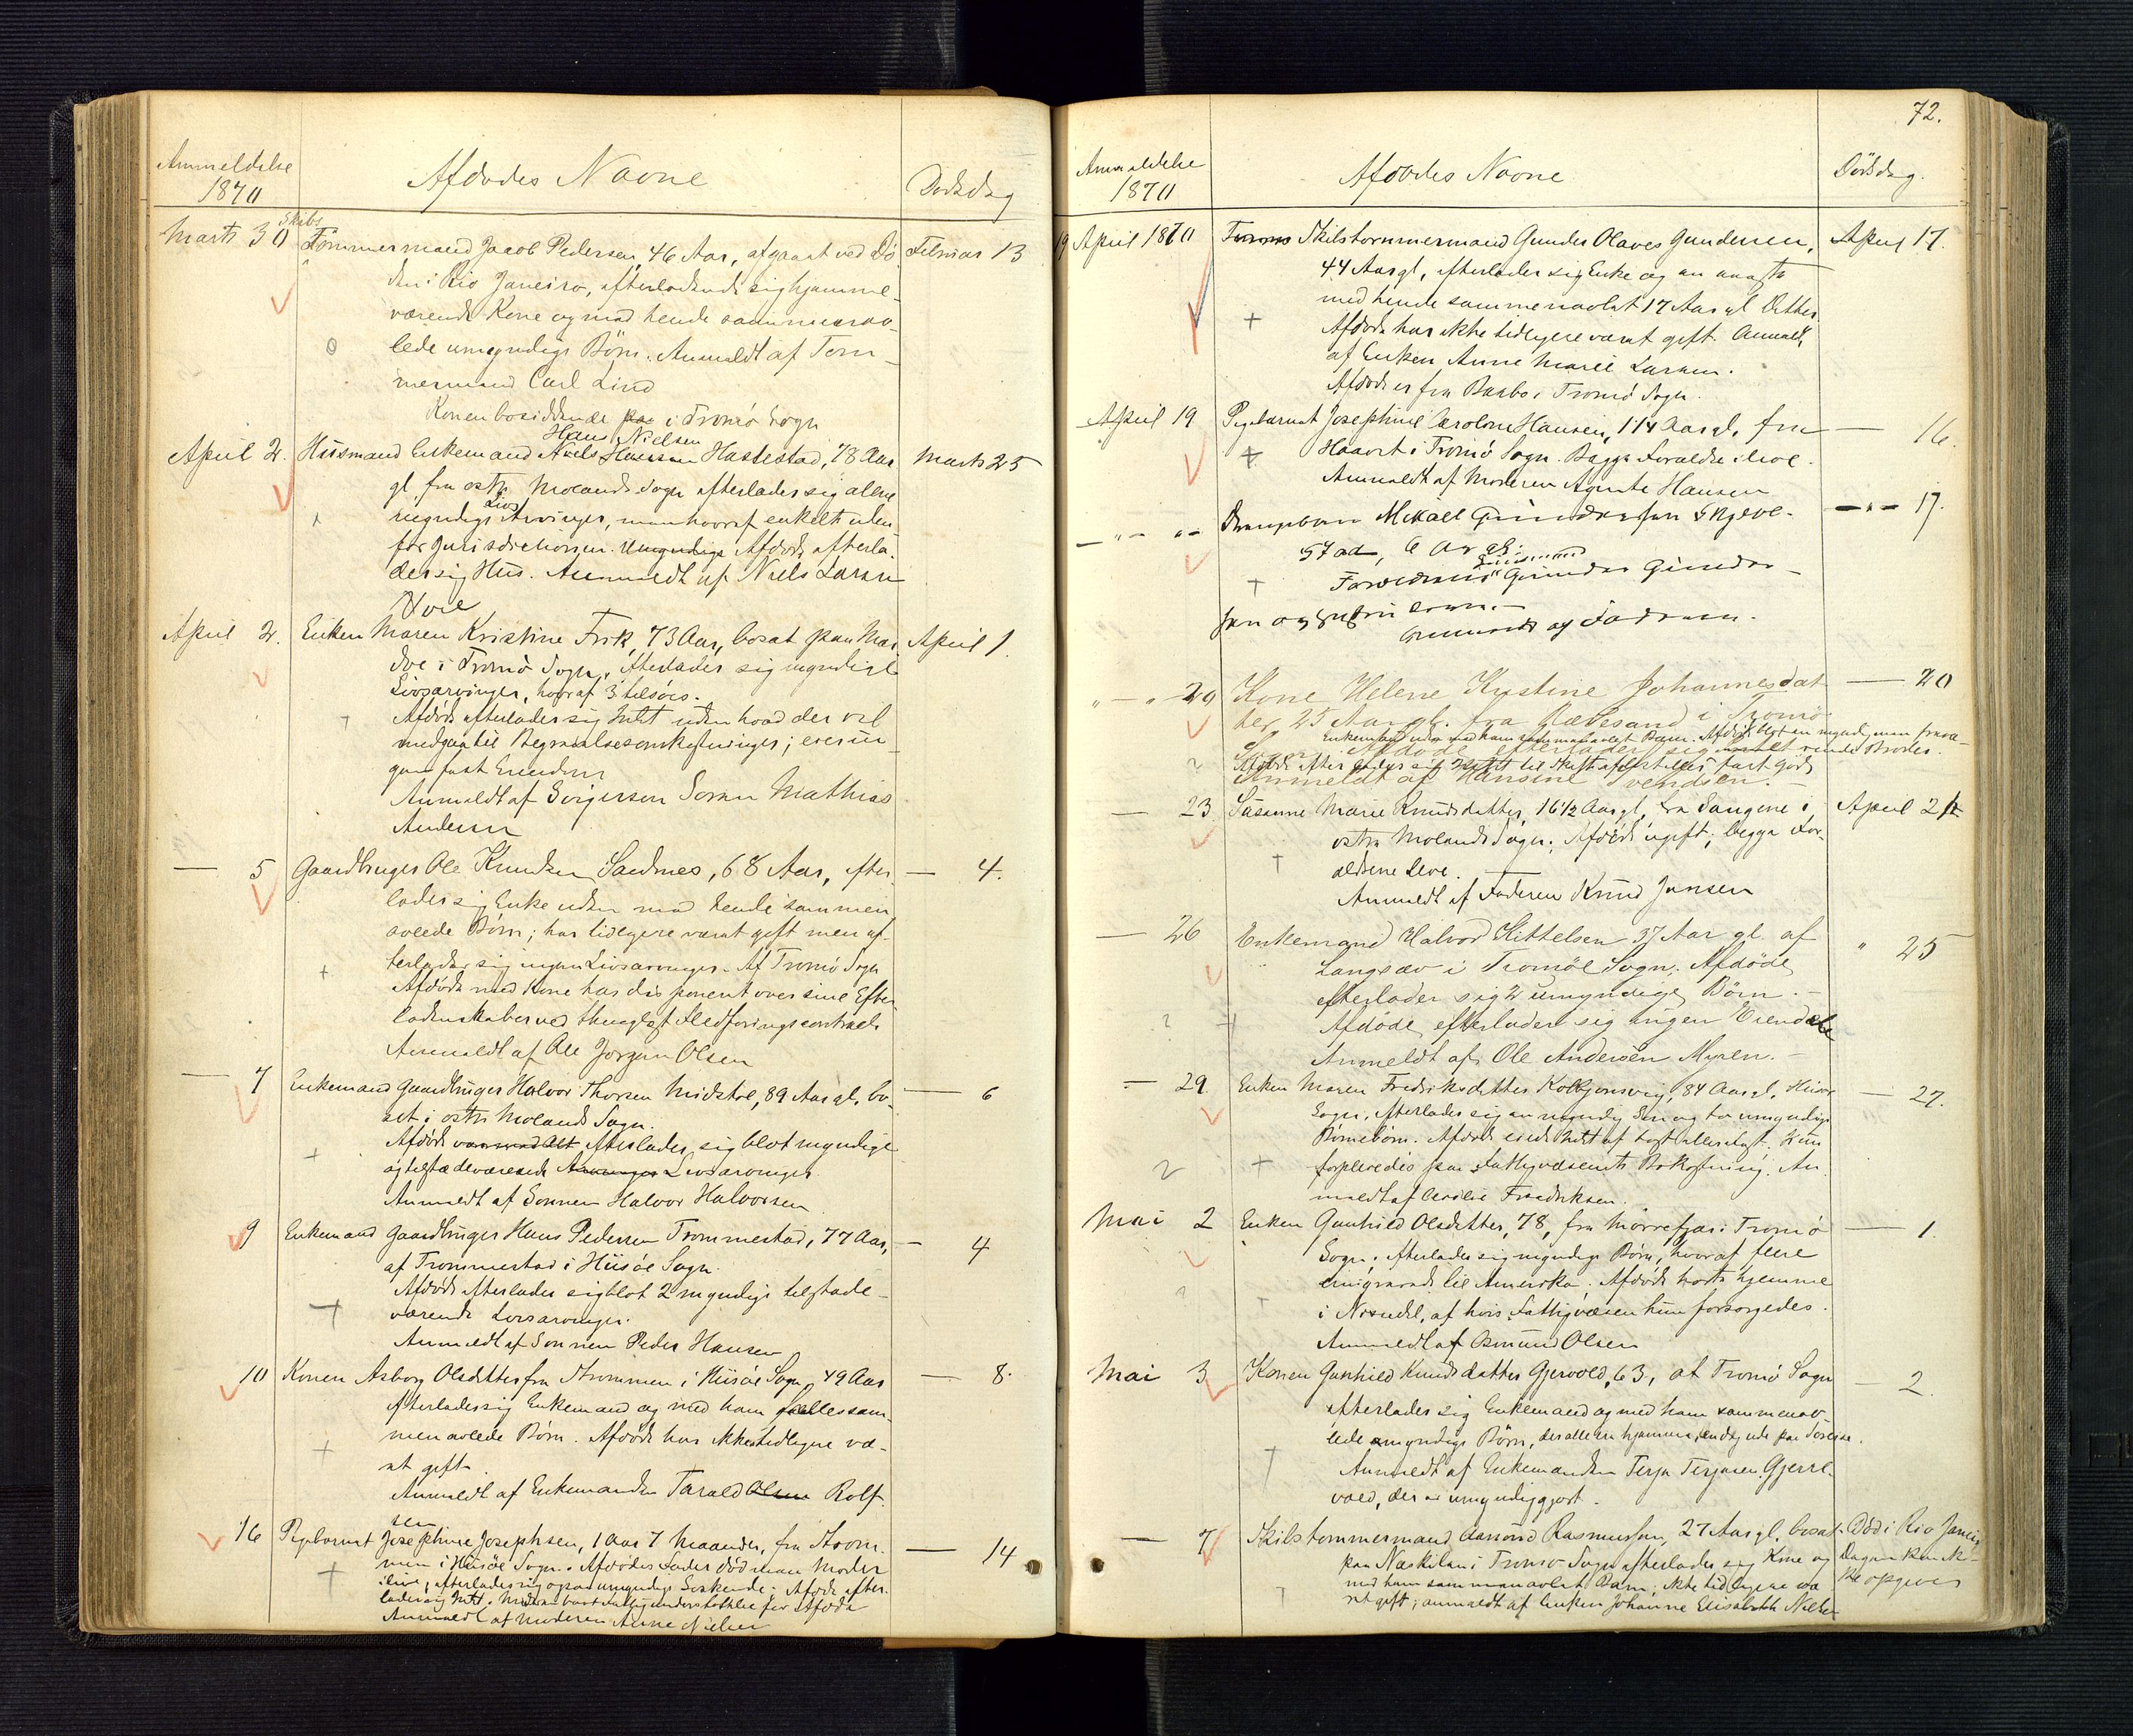 Anmeldelse
1870
Afdødes Navne
Dødsdag
Marts 30
Skibs
Tømmermand Jacob Pedersen, 46 Aar, afgaaet ved Dø-
Februar 13
den i Rio Janeiro, efterladende sig hjemme-
værende Kone og med hende sammenav-
lede umyndige Børn. Anmeldt af Tøm-
mermand Carl Lind
Konen bosiddende paa i Tromø Sogn
Hans Nielsen
April 2.
Huusmand Enkemand Niels Hansen Hastestad, 78 Aar
Marts 25
gl. fra østre Molands Sogn efterlader sig alene
Livs
myndige Arvinger, men hvoraf enkelte uden-
for Jurisdictionen. Umyndige Afdøde efterla-
der sig Hus. Anmeldt af Niels Larsen
April 2.
Enken Maren Kristine Fisk, 73 Aar, bosat paa Mær-
April 1.
døe i Tromø Sogn, efterlader sig myndige
Livsarvinger, hvoraf 3 tilsøes.
Afdøde efterlader sig Intet uden hvad der vil
medgaa til Begravelsesomkostninger; eier in-
gen fast Eiendom
Anmeldt af Svigersøn Søren Mathias
Andersen
— 5
Gaardbruger Ole Knudsen Sandnes, 68 Aar, efter-
— 4.
lader sig Enke uden med hende sammen
avlede Børn; har tidligere været gift men ef-
terlader sig ingen Livsarvinger. Af Tromø Sogn
Afdøde med Kone har disponeret over sine Efter-
ladenskaber ved thinglæst Ledføringscontract
Anmeldt af Ole Jørgen Olsen
— 7
Enkemand Gaardbruger Halvor Thorsen Midstøl, 89 Aar gl. bo-
— 6
sat i østre Molands Sogn.
Afdøde efterlader sig blot myndige
og tilstedeværende Arvinger Livsarvinger.
Anmeldt af Sønnen Halvor Halvorsen
9
Enkemand Gaardbruger Hans Pedersen Trommestad, 77 Aar,
— 4
af Trommestad i Hisøe Sogn.
Afdøde efterlader sig blot 2 myndige tilstede-
værende Livsarvinger.
Anmeldt af Sønnen Peder Hansen
10
Konen Asborg Olsdatter fra Strømmen i Hisøe Sogn, 49 Aar
— 8.
efterlader sig Enkemand og med ham fælles sam-
menavlede Børn. Afdøde har ikke tidligere væ-
ret gift.
Anmeldt af Enkemanden Tarald Olsen Rolf-
sen
16
Pigebarnet Josephine Josephsen, 1 Aar 7 Maaneder, fra Strøm-
— 14
men i Hisøe Sogn. Afdødes Fader død men Moder
ilive, efterlader sig ogsaa umyndige Søskende. Afdøde efter-
lader sig Intet.
Anmeldt af Moderen Anne Nielsen
72.
Anmeldelse
1870
Afdødes Navne
Dødsdag.
19 April 1870
Skibstømmermand Gunder Olaves Gundersen,
April 17.
44 Aar gl., efterlader sig Enke og en ængste
med hende sammenavlet 17 Aar gl. Datter
Afdøde har ikke tidligere været gift. Anmeldt
af Enken Anne Marie Larsen.
Afdøde er fra Barbo i Tromø Sogn.
April 19
Pigebarnet Josephine Caroline Hansen, 1 1/4 Aar gl. fra
— 16.
Haavet i Tromø Sogn. Begge Forældre i Live.
Anmeldt af Moderen Agnete Hansen
— " — " —
Drengebarn Mikael Gundersen Skjeve-
— " — 17.
stad, 6 Ar gl.
Huusmand
Forældrene Gunder Gunder-
sen og
Anmeldt af Faderen.
" — " 20
Kone Helene Kristine Johannesdat-
— 20
ter, 25 Aar gl. fra Rævesand i Tromø
Enkemand uden med ham sammenavlet Barn.
Sogn. Afdøde efterlader sig
Anmeldt af Hansine Svendsen.
— 23
Susanne Marie Knudsdatter, 16 1/2 Aar gl. fra Sangene i
April 21
østre Molands Sogn; Afdøde ugift; begge For-
ældrene Leve.
Anmeldt af Faderen Knud Jansen
— 26
Enkemand Halvor Kittelsen 37 Aar gl. af
" 25
Langsæv i Tromøe Sogn. Afdøde
efterlader sig 2 umyndige Børn. —
Afdøde efterlader sig ingen Eiendele
Anmeldt af Ole Andersen Myren. —
— 29.
Enken Maren Fredriksdatter Kolbjønsvig, 84 Aar gl., Hisøe
— 27.
Sogn, efterlader sig en myndig Søn og to umyndige
Børnebørn. Afdøde eiede Intet af Løst eller Fast. Hun
forpleiedes paa Fattigvæsenets Bekostning. An-
meldt af Cecilie Fredriksen.
Mai 2
Enken Gunhild Olsdatter, 78, fra Mørrefjær i Tromø
— 1.
Sogn, efterlader sig myndige Børn, hvoraf flere
emigrerede til Amerika. Afdøde hørte hjemme
i Nissedal, af hvis Fattigvæsen hun forsørgedes.
Anmeldt af Osmund Olsen
Mai 3
Konen Gunhild Knudsdatter Gjervold, 63, af Tromø Sogn
— 2.
efterlader sig Enkemand og med ham sammenav-
lede myndige Børn, der alle er hjemme, en dog ude paa Søreise.
Anmeldt af Enkemanden Terje Terjesen Gjerre-
vold, der er umyndiggjort.
— 7
Skibstømmermand Aanond Rasmussen, 27 Aar gl. bosat
Død i Rio Janeiro
paa Næskilen i Tromø Sogn efterlader sig Kone og
Dagen kan ik-
med ham sammenavlet Barn; ikke tidligere væ-
ke opgives
ret gift; anmeldt af Enken Johanne Elisabeth Nielsen